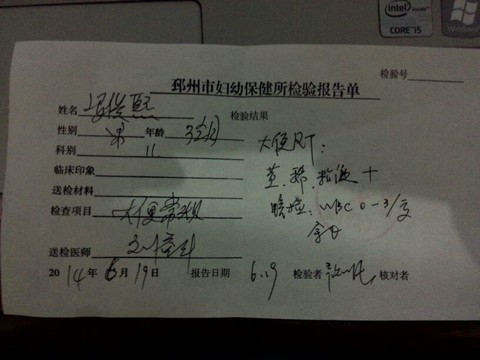 intel
inside
CORE i5
Windows
邳州市妇幼保健所检验报告单
检验号
姓名
检验结果
性别 男 年龄 3个月
大便RT:
科别 儿
黄.稀.粘液+
临床印象
送检材料
镜检:WBC 0-3/
检查项目 大便常规
送检医师
2014年6月19日 报告日期 6.19 检验者 核对者